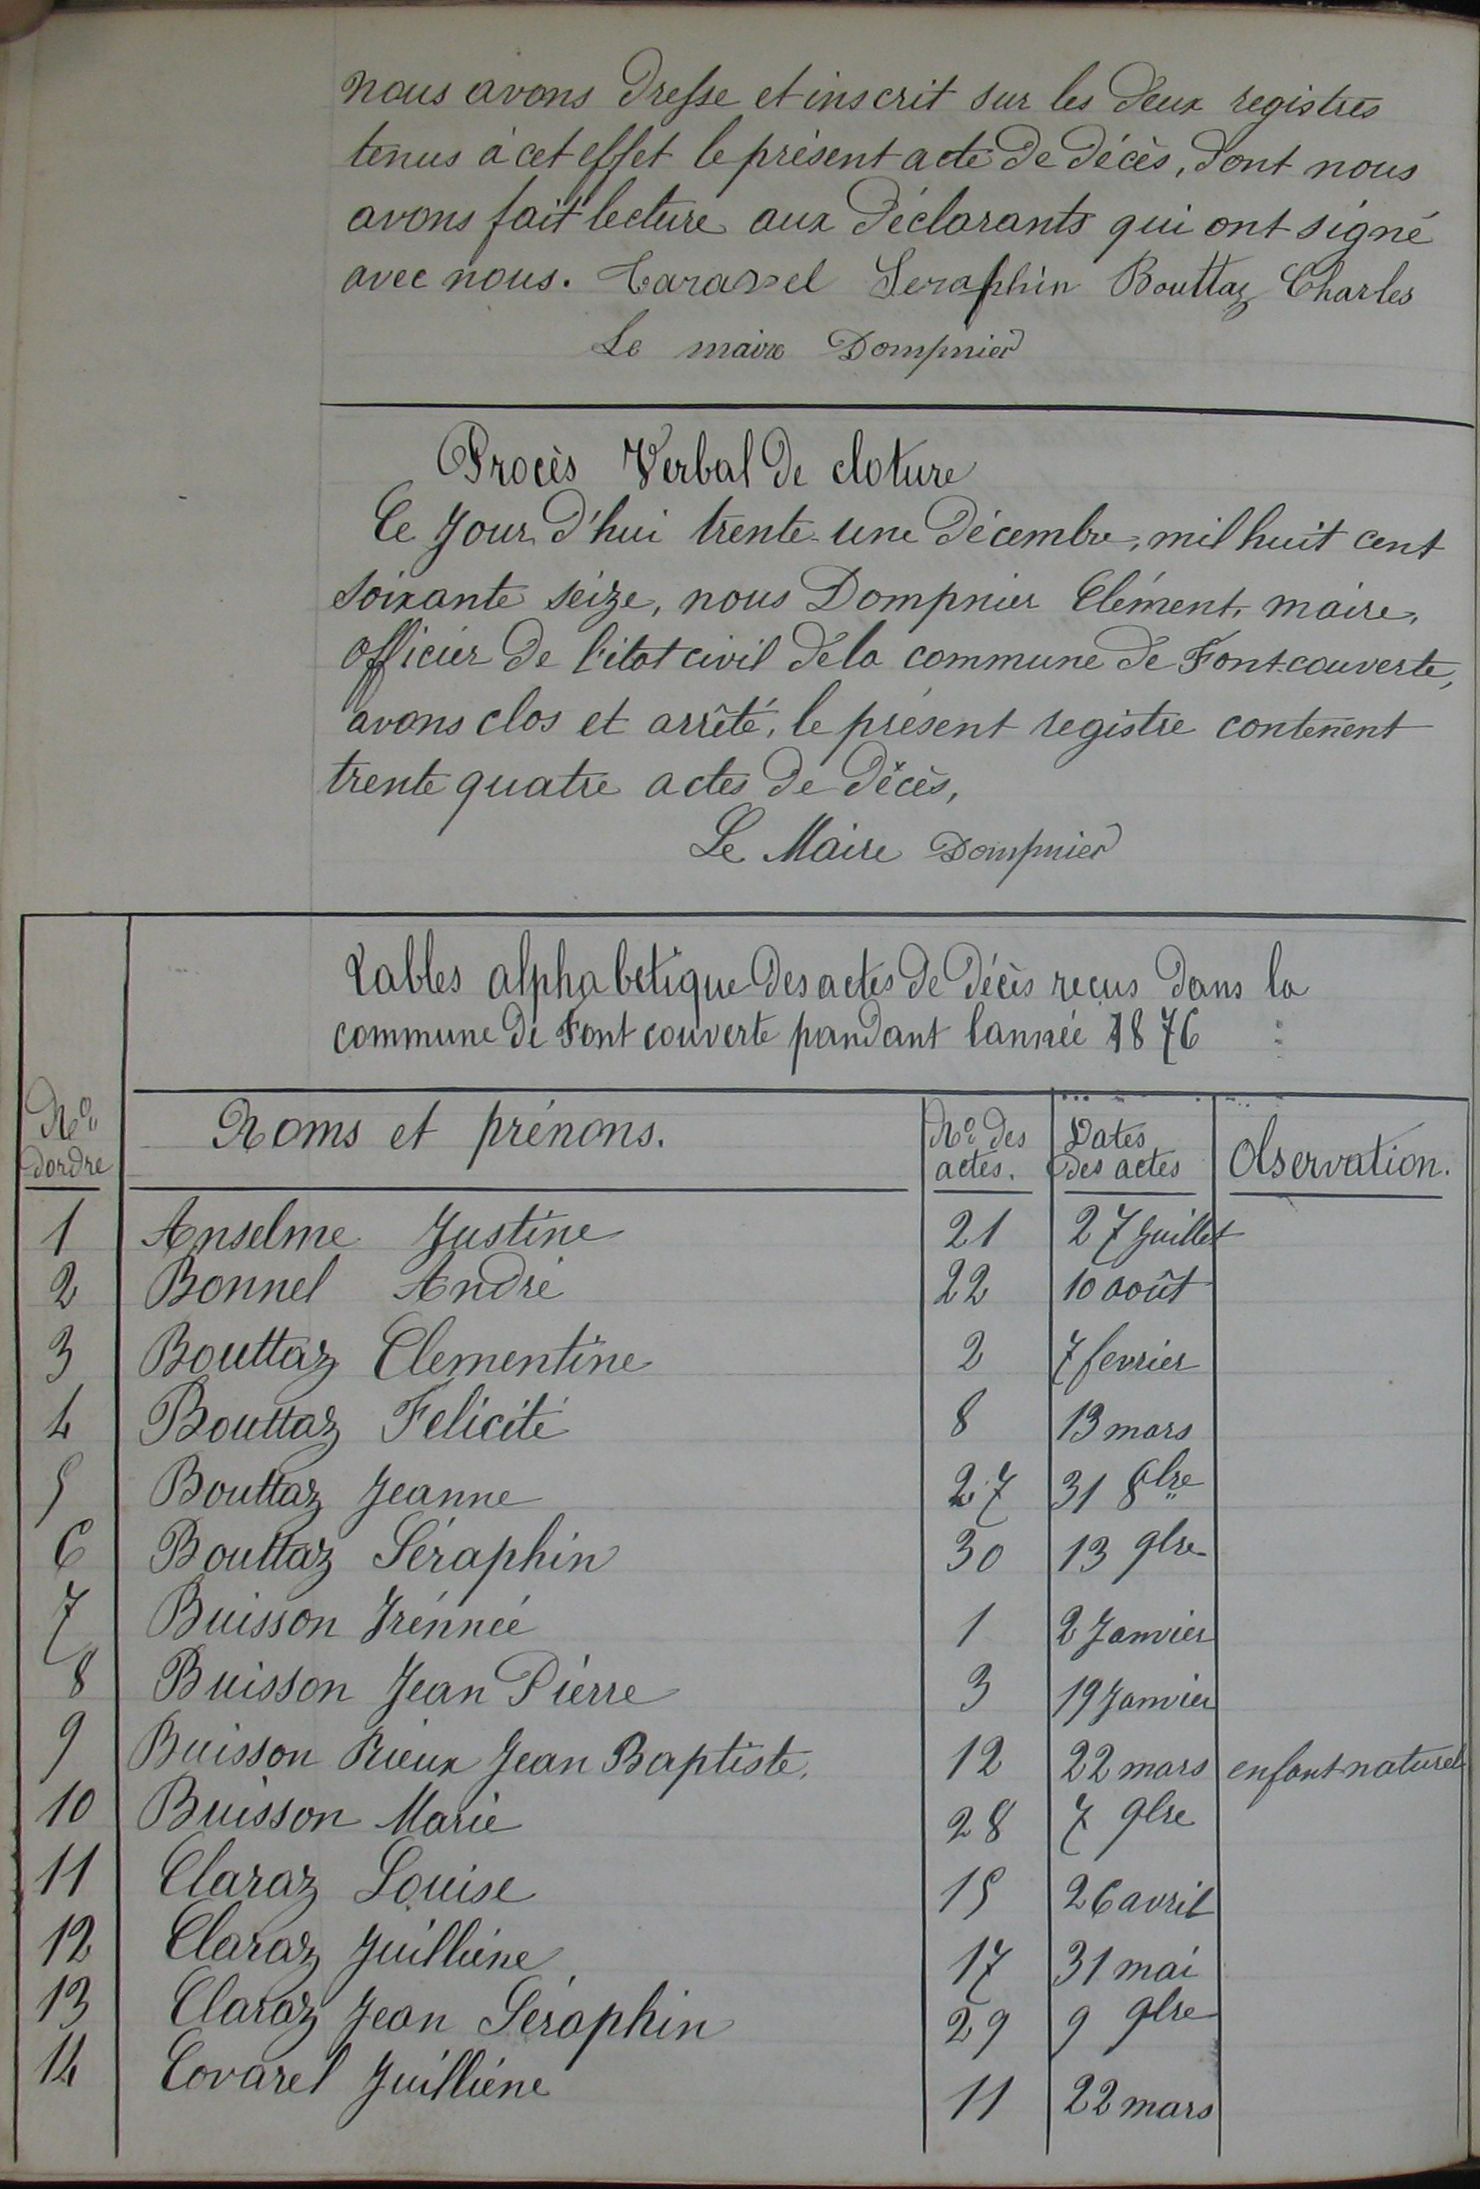 nous avons dresse et inscrit sur les deux registres
tenus à cet effet le présent acte de décès, dont nous
avons fait lecture aux déclarants qui ont signé
avec nous. Taravel Seraphin Bouttaz Charles
Le maire Dompnier
Procès Verbal de cloture
Ce Jour d'hui trente-une décembre, mil huit cent
soixante seize, nous Dompnier Clément, maire,
officier de l'état civil de la commune de Font-couverte,
avons clos et arrêté, le présent registre contenent
trente quatre actes de décès,
Le Maire Dompnier
Tables alphabetique des actes de décès reçus dans la
commune de Font couverte pandant lannée 1876
Nº dordre Noms et prénons. Nº des actes. Dates des actes Observation.
1 Anselme Justine 21 27 Juillet
2 Bonnel André 22 10 août
3 Bouttaz Clementine 2 7 fevrier
4 Bouttaz Felicité 8 13 mars
5 Bouttaz Jeanne 27 31 8bre
6 Bouttaz Séraphin 30 13 9bre
7 Buisson Irénnée 1 2 Janvier
8 Buisson Jean Pierre 3 19 Janvier
9 Buisson Rieux Jean Baptiste. 12 22 mars enfant naturel
10 Buisson Marie 28 7 9bre
11 Claraz Louise 15 26 avril
12 Claraz Juilliène 17 31 mai
13 Claraz Jean Séraphin 29 9 9bre
14 Covarel Juilliéne 11 22 mars